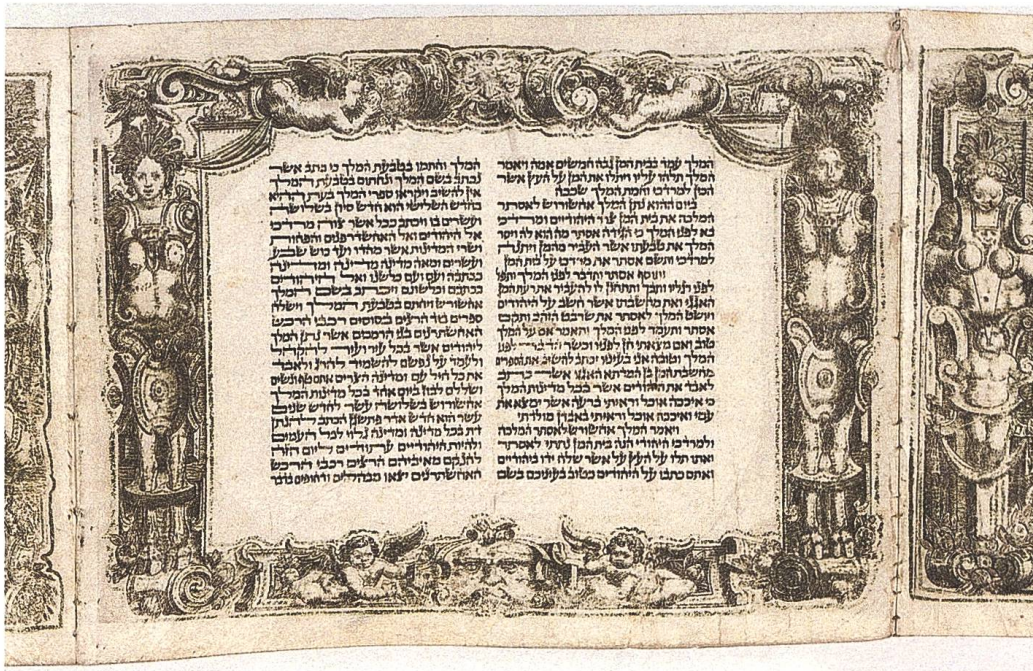 המלך עמד בבית המן גבה חמשים אמה ויאמר
המלך תלהו עליו ויתלו את המן על העץ אשר
הכין למרדכי וחמת המלך שככה
ביום ההוא נתן המלך אחשורוש לאסתר
המלכה את בית המן צרר היהודיים ומרדכי
בא לפני המלך כי הגידה אסתר מה הוא לה ויסר
המלך את טבעתו אשר העביר מהמן ויתנה
למרדכי ותשם אסתר את מרדכי על בית המן
ותוסף אסתר ותדבר לפני המלך ותפל
לפני רגליו ותבך ותתחנן לו להעביר את רעת המן
האגגי ואת מחשבתו אשר חשב על היהודים
ויושט המלך לאסתר את שרבט הזהב ותקם
אסתר ותעמד לפני המלך ותאמר אם על המלך
טוב ואם מצאתי חן לפניו וכשר הדבר לפני
המלך וטובה אני בעיניו יכתב להשיב את הספרים
מחשבת המן בן המדתא האגגי אשר כתב
לאבד את היהודים אשר בכל מדינות המלך
כי איככה אוכל וראיתי ברעה אשר ימצא את
עמי ואיככה אוכל וראיתי באבדן מולדתי
ויאמר המלך אחשורש לאסתר המלכה
ולמרדכי היהודי הנה בית המן נתתי לאסתר
ואתו תלו על העץ על אשר שלח ידו ביהודיים
ואתם כתבו על היהודים כטוב בעיניכם בשם
המלך וחתמו בטבעת המלך כי כתב אשר
נכתב בשם המלך ונחתום בטבעת המלך
אין להשיב ויקראו ספרי המלך בעת ההיא
בחדש השלישי הוא חדש סיון בשלושה
ועשרים בו ויכתב ככל אשר צוה מרדכי
אל היהודים ואל האחשדרפנים והפחות
ושרי המדינות אשר מהדו ועד כוש שבע
ועשרים ומאה מדינה מדינה ומדינה
ככתבה ועם ועם כלשנו ואל היהודים
ככתבם וכלשונם ויכתב בשם המלך
אחשורש ויחתם בטבעת המלך וישלח
ספרים ביד הרצים בסוסים רכבי הרכש
האחשתרנים בני הרמכים אשר נתן המלך
ליהודים אשר בכל עיר ועיר להקהל
ולעמד על נפשם להשמיד להרג ולאבד
את כל חיל עם ומדינה הצרים אתם טף ונשים
ושללם לבוז ביום אחד בכל מדינות המלך
אחשורוש בשלושה עשר לחדש שנים
עשר הוא חדש אדר פתשגן הכתב להנתן
דת בכל מדינה ומדינה גלוי לכל העמים
ולהיות היהודיים עתודים ליום הזה
להנקם מאיביהם הרצים רכבי הרכש
האחשתרנים יצאו מבהלים ודחופים בדבר